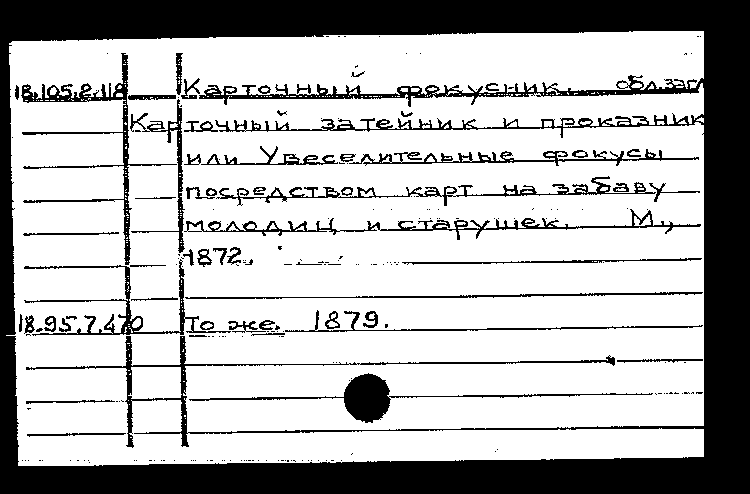 18.105.2.118 Карточный фокусник. обл.загл
Карточный затейник и проказник
или Увеселительные фокусы
посредством карт на забаву
молодиц и старушек. М.,
1872.
18.95.7.470 То же. 1879.